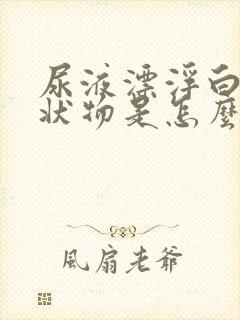 尿液漂浮白
狀物是怎麼
風扇老爺